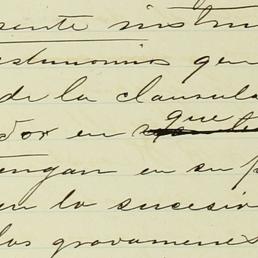 sente instru
testimonios que
de la clausula
dor en que
tengan en su p
en lo sucesiv
los gravamenes